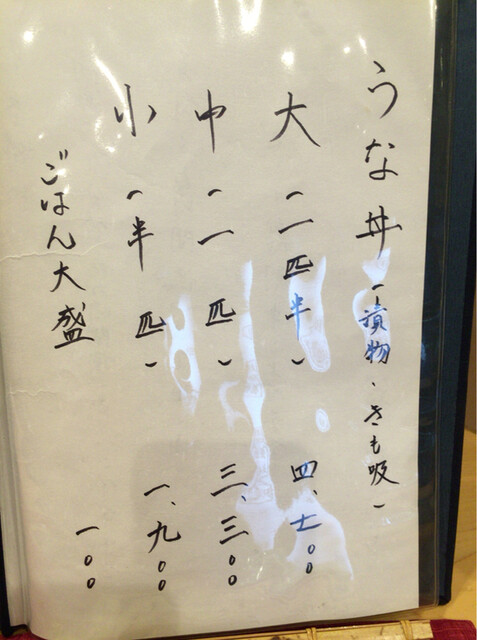 うな丼(漬物、きも吸)
大(一匹半)四、七〇〇
中(一匹)三、三〇〇
小(半匹)一、九〇〇
ごはん大盛 一〇〇